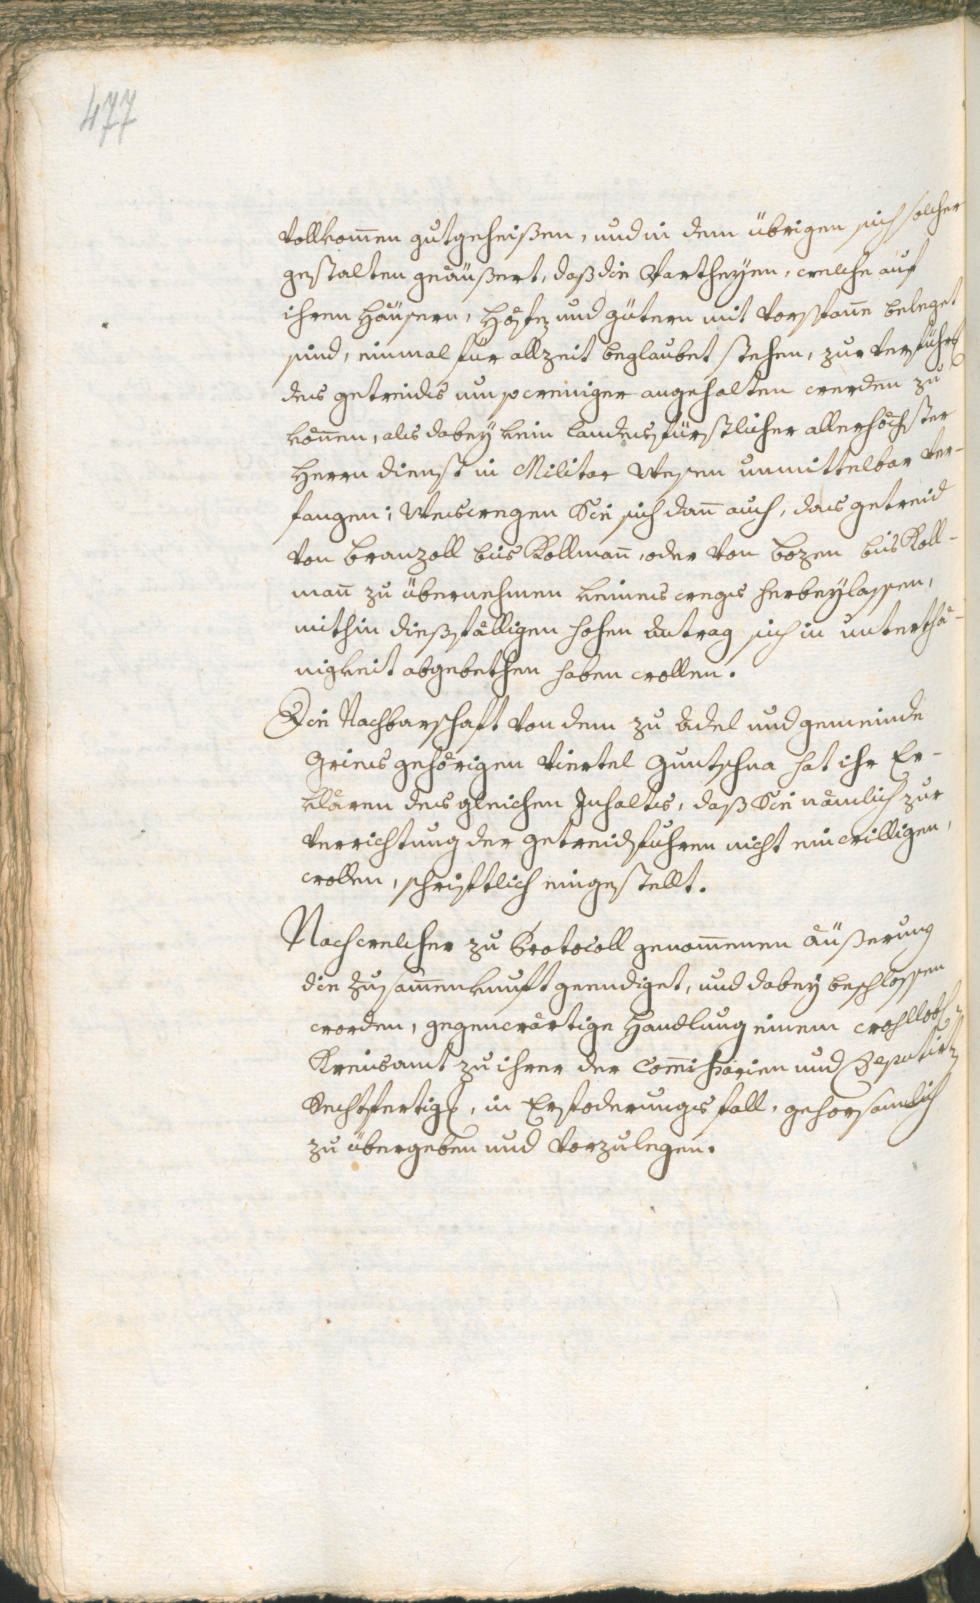 477
vollkom̄en gutgeheißen, und in dem übrigen sich solcher
gestalten geäußert, daß die Partheyen, welche auf
ihren Häusern, Höfen und gütern mit Vorspan̄ beleget
sind, einmal für allzeit beglaubet stehen, zur Verführ
des getreides um so weniger angehalten werden zu
können, als dabey kein landesfürstlicher allerhöchster
Herrn dienst in Militar Wesen unmittelbar ver-
fangen; Weswegen Sie sich dan̄ auch, das getreid
von Branzoll bis Kollman̄, oder von Bozen bis Koll-
man̄ zu übernehmen keines wegs herbeylassen,
mithin dießfälligen hohen Antrag sich in unterthä-
nigkeit abgebethen haben wollen.
Die Nachbarschaft von dem zu Adel und gemeinde
Gries gehörigen Viertel Guntschna hat ihr Er-
klären des gleichen Inhaltes, daß Sie nämlich zur
Verrichtung der getreidfuhren nicht einwilligen,
wollen, schriftlich eingestellt.
Nach welcher zu Protocoll genom̄enen äußerung
die Zusam̄enkunft geendiget, und dabey beschlossen
worden, gegenwärtige Handlung einem wohllobl:
Kreisamt zu ihrer der Com̄ißarien und Deputirten
Rechtfertig, in Erfoderungs fall, gehorsamlich
zu übergeben und vorzulegen.